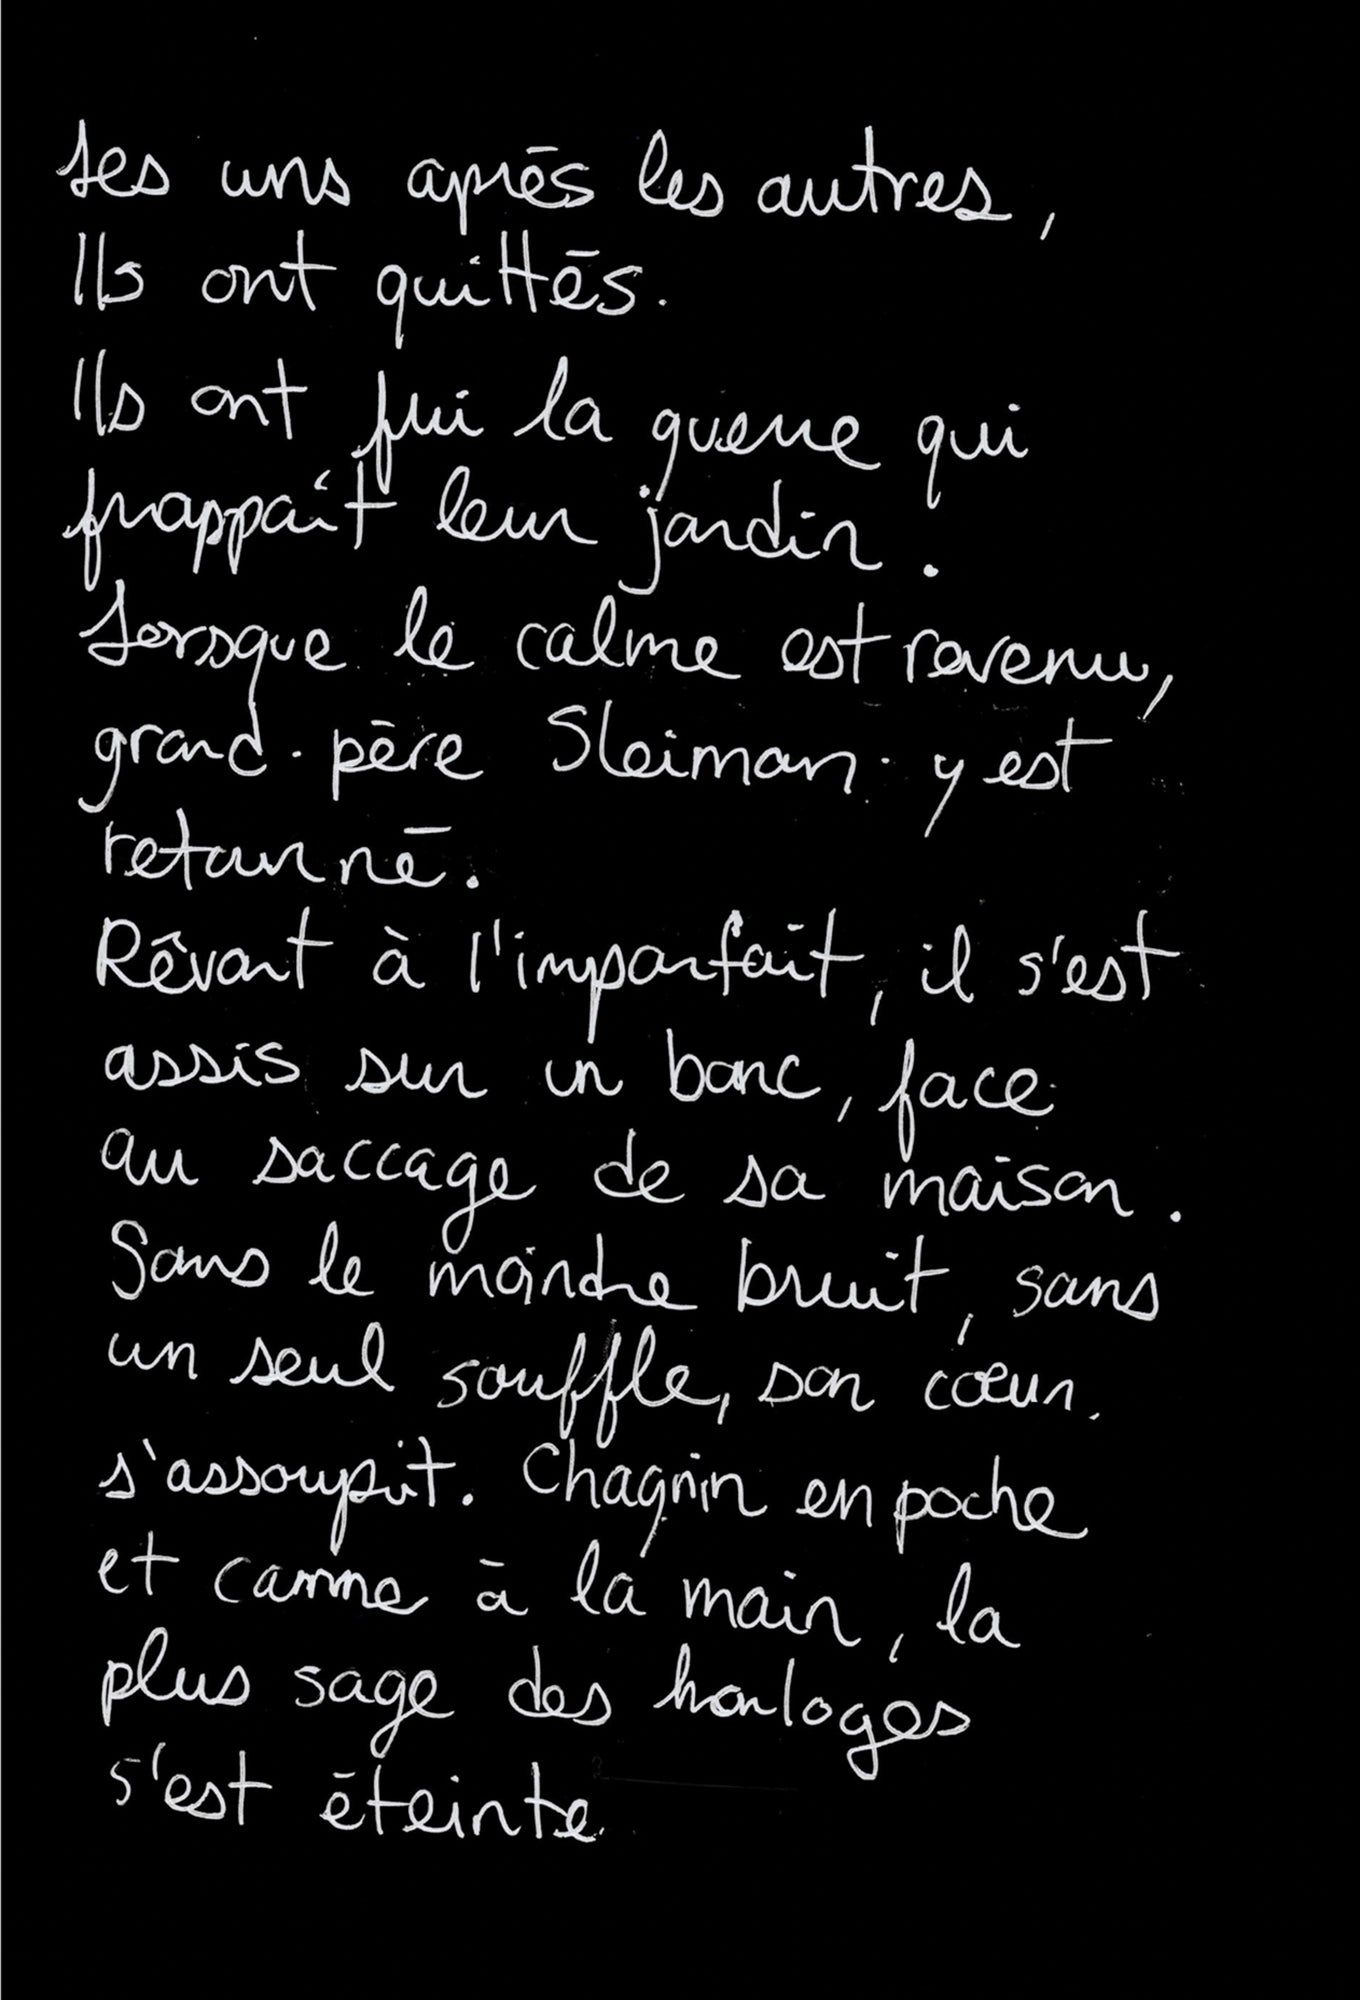 Les uns après les autres,
Ils ont quittés.
Ils ont fui la guerre qui
frappait leur jardin.
Lorsque le calme est revenu,
grand-père Sleiman y est
retourné.
Rêvant à l'imparfait, il s'est
assis sur un banc, face
au saccage de sa maison.
Sans le moindre bruit, sans
un seul souffle, son cœur
s'assoupit. Chagrin en poche
et canne à la main, la
plus sage des horloges
s'est éteinte